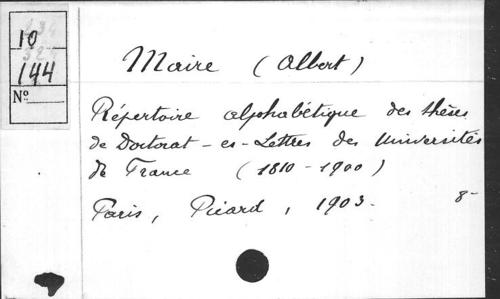 10
144
No
Maire (Albert)
Répertoire alphabétique des thèses
de Doctorat-es-Lettres des Universités
de France (1810-1900)
Paris, Picard, 1903. 8-